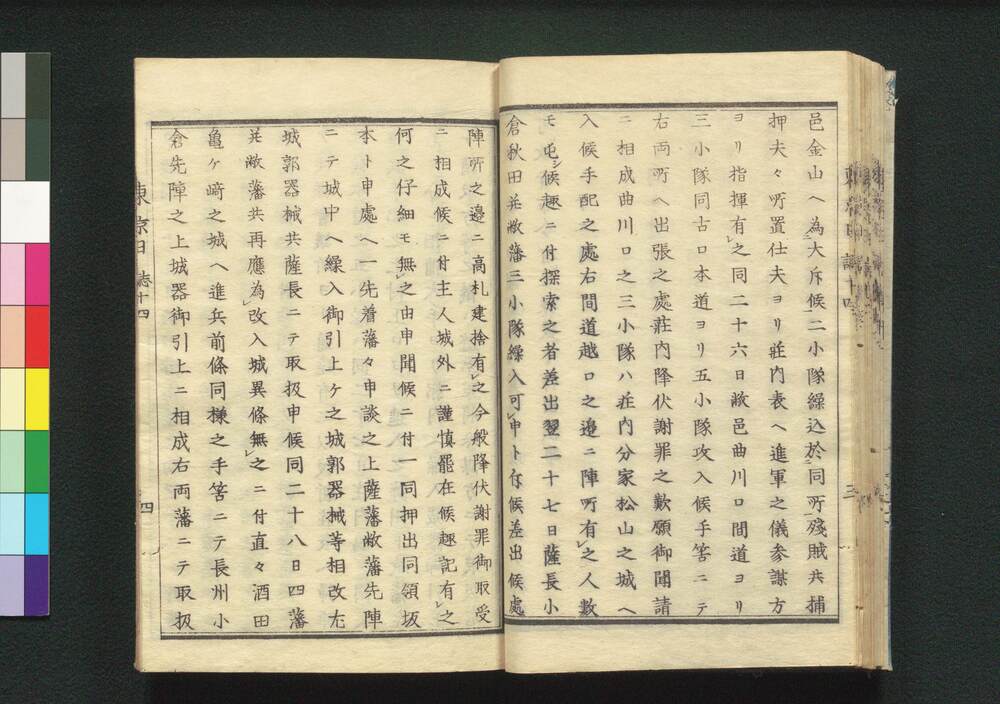 邑金山ヘ為大斥候二小隊繰込於同所殘賊共捕
押夫々所置仕夫ヨリ莊内表ヘ進軍之儀參謀方
ヨリ指揮有之同二十六日敝邑曲川口間道ヨリ
三小隊同古口本道ヨリ五小隊攻入候手筈ニテ
右両所ヘ出張之處莊内降伏謝罪之歎願御聞請
ニ相成曲川口之三小隊ハ莊内分家松山之城ヘ
入候手配之處右間道越口之邊ニ陣所有之人數
モ屯候趣ニ付探索之者差出翌二十七日薩長小
倉秋田並敝藩三小隊繰入可申ト存候差出候處
陣所之邊ニ高札建捨有之今般降伏謝罪御取受
ニ相成候ニ付主人城外ニ謹慎罷在候趣記有之
何之仔細モ無之由申聞候ニ付一同押出同領坂
本ト申處ヘ一先着藩々申談之上薩藩敝藩先陣
ニテ城中ヘ繰入御引上ケ之城郭器械等相改尢
城郭器械共薩長ニテ取扱申候同二十八日四藩
並敝藩共再應為改入城異條無之ニ付直々酒田
亀ケ﨑之城ヘ進兵前條同樣之手筈ニテ長州小
倉先陣之上城器御引上ニ相成右両藩ニテ取扱
東京日誌十四
四
三